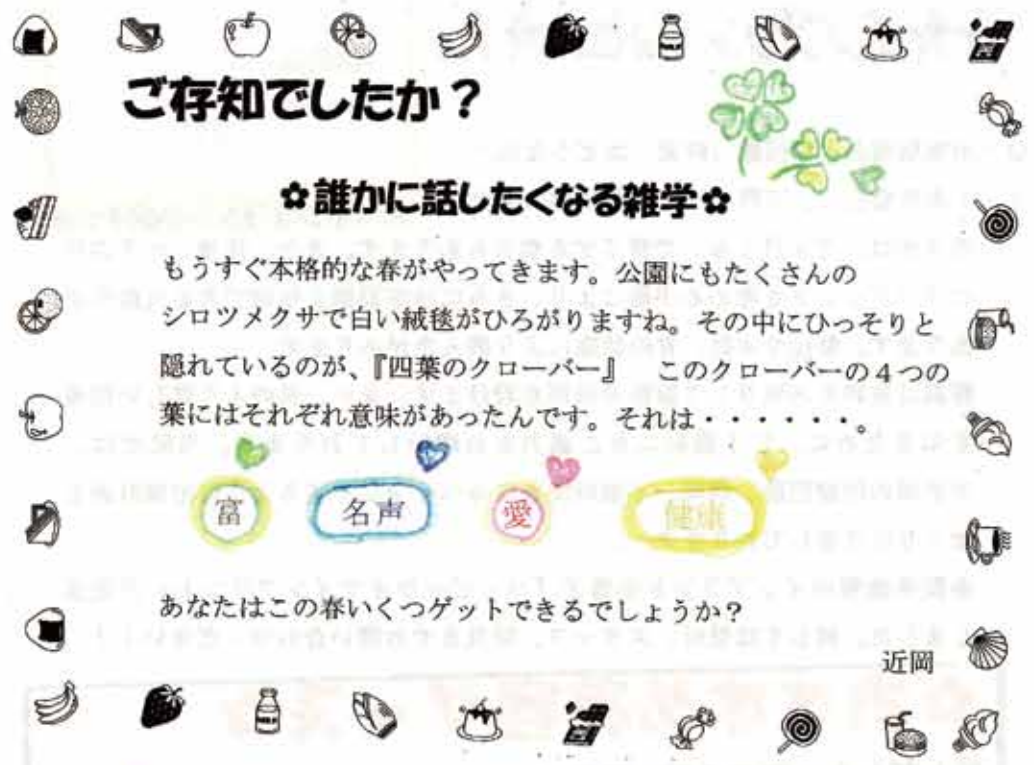 ご存知でしたか？
✿誰かに話したくなる雑学✿
もうすぐ本格的な春がやってきます。公園にもたくさんの
シロツメクサで白い絨毯がひろがりますね。その中にひっそりと
隠れているのが、『四葉のクローバー』　このクローバーの４つの
葉にはそれぞれ意味があったんです。それは・・・・・・。
富　名声　愛　健康
あなたはこの春いくつゲットできるでしょうか？
近岡